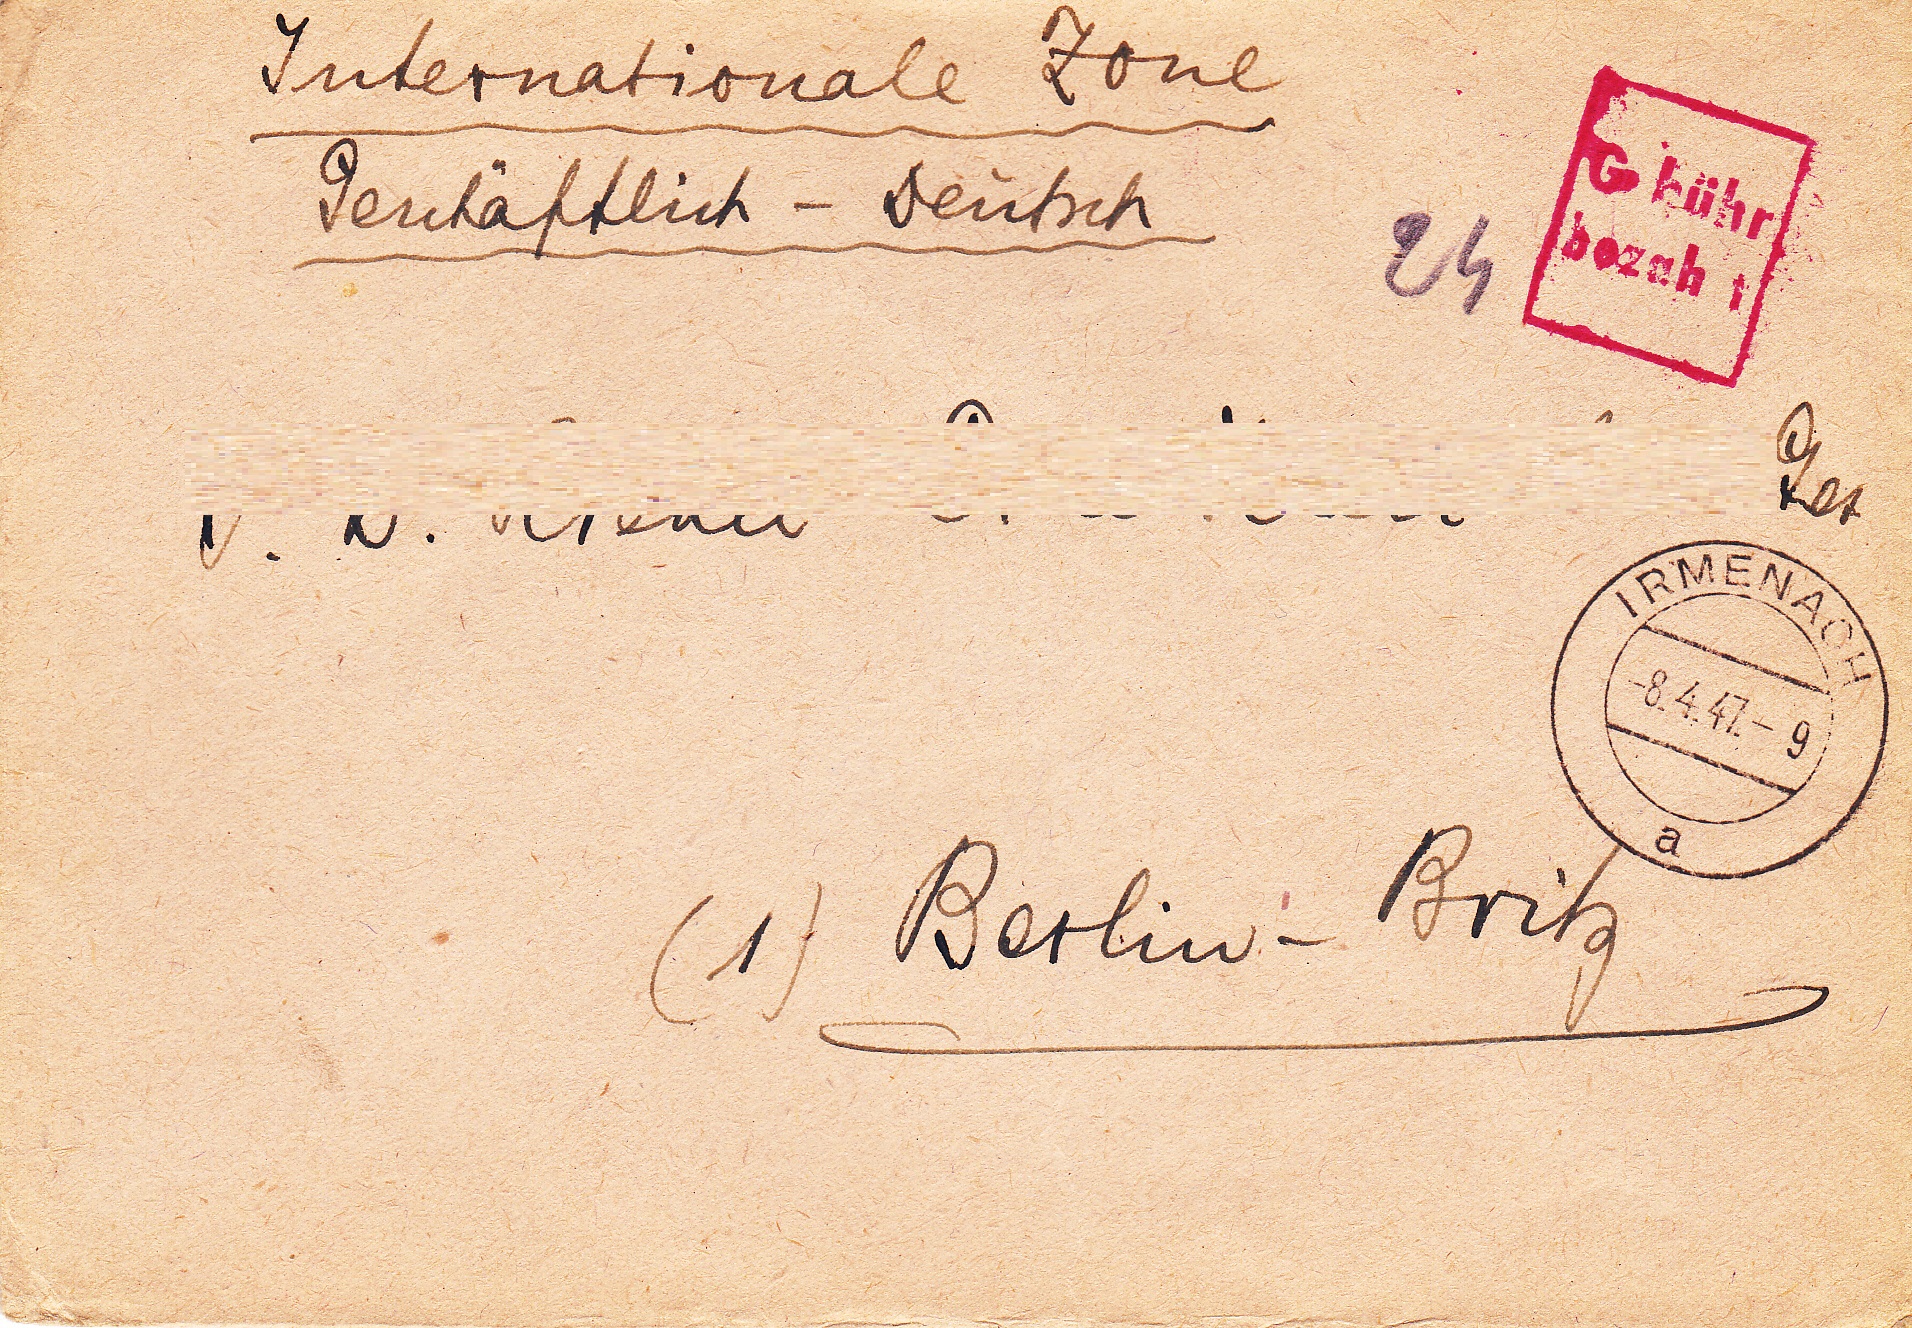 Internationale Zone
Geschäftlich - Deutsch
24
Gebühr
bezahlt
IRMENACH
-8.4.47.- 9
a
(1) Berlin-Britz